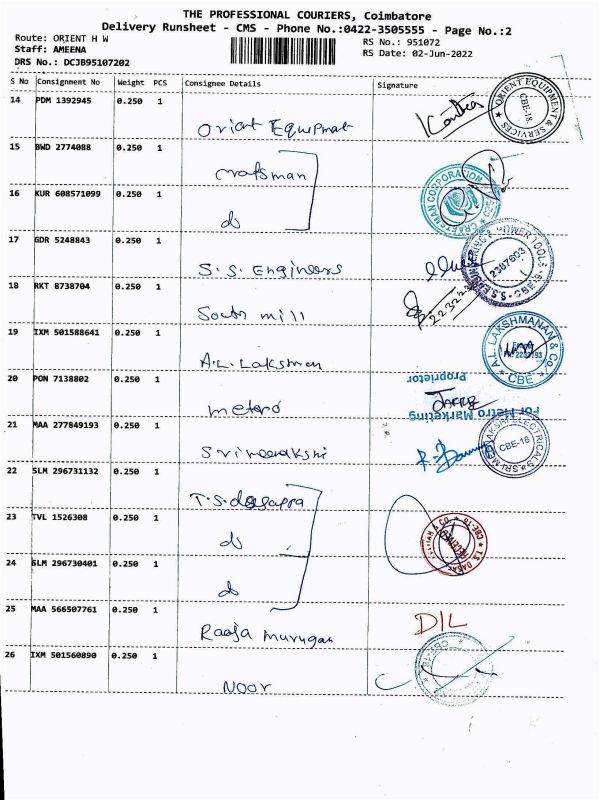 THE PROFESSIONAL COURIERS, Coimbatore
Delivery Runsheet - CMS - Phone No.:0422-3505555 - Page No.:2
Route: ORIENT H W
RS No.: 951072
Staff: AMEENA
RS Date: 02-Jun-2022
DRS No.: DCJB95107202
S No Consignment No Weight PCS Consignee Details Signature
14 PDM 1392945 0.250 1
Orient Equipment
ORIENT EQUIPMENT & SERVICES CBE-18
15 BWD 2774088 0.250 1
Craftsman
16 KUR 608571099 0.250 1
do
CRAFTSMAN CORPORATION
17 GDR 5248843 0.250 1
S.S. Engineers
2387603
18 RKT 8738704 0.250 1
South mill
19 IXM 501588641 0.250 1
A.L. Laksman
A.L. LAKSHMANAN & Co. CBE
20 PON 7138802 0.250 1
metero
For Metro Marketing
Proprietor
21 MAA 277849193 0.250 1
Srimeenakshi
CBE-18
22 SLM 296731132 0.250 1
23 TVL 1526308 0.250 1
do
24 SLM 296730401 0.250 1
do
25 MAA 566507761 0.250 1
Raaja murugan
DIL
26 IXM 501560890 0.250 1
Noor